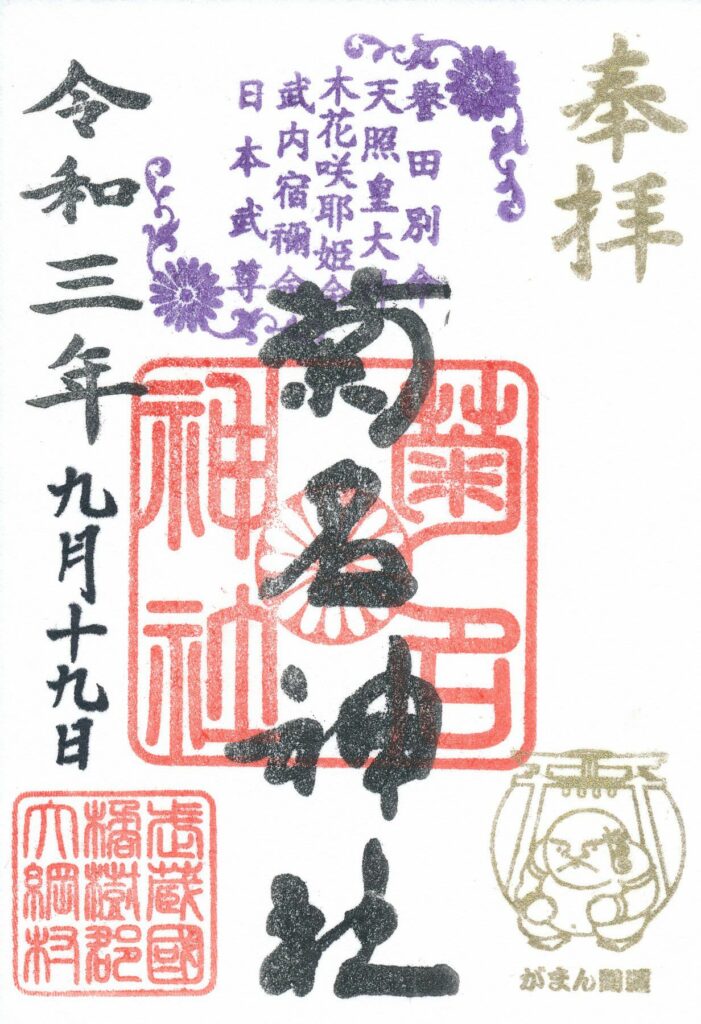 奉拝
譽田別命
天照皇大神
木花咲耶姫命
武内宿禰命
日本武尊
菊名神社
菊名
神社
令和三年九月十九日
武蔵國
橘樹郡
大綱村
がまん開運